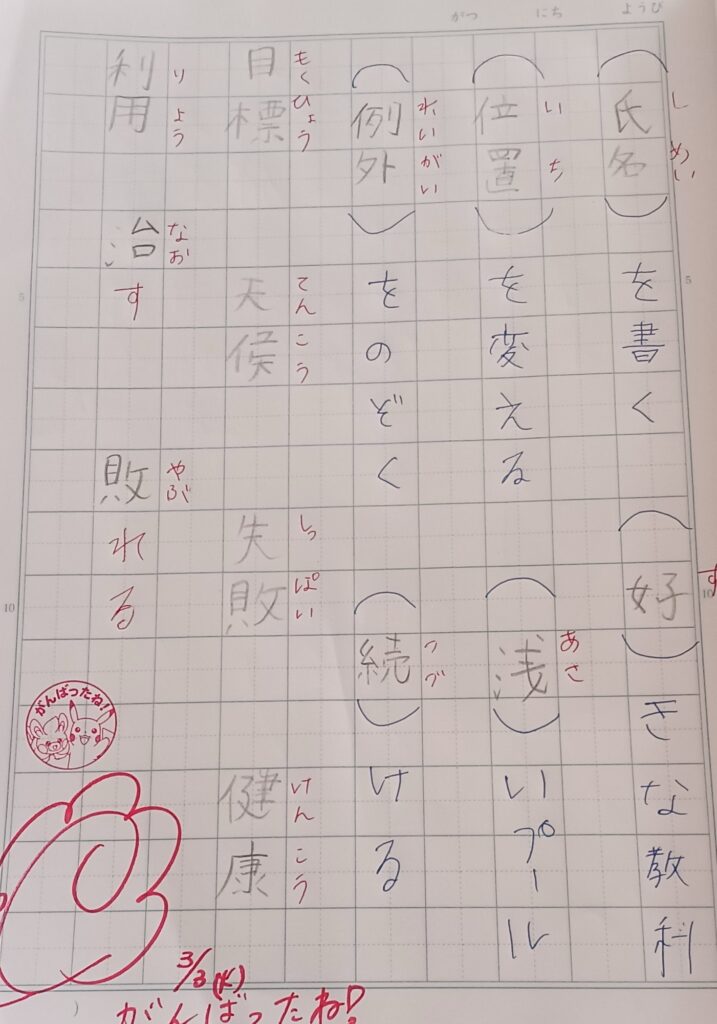 がつ にち ようび
し めい す
（氏名）を書く （好）きな教科
い ち あさ
（位置）を変える （浅）いプール
れい がい つづ
（例外）をのぞく （続）ける
もく ひょう てん こう しっ ぱい けん こう
目標 天候 失敗 健康
り よう なお やぶ
利用 治す 敗れる
5
10
5
10
がんばったね!!
3/3(火)
がんばったね!